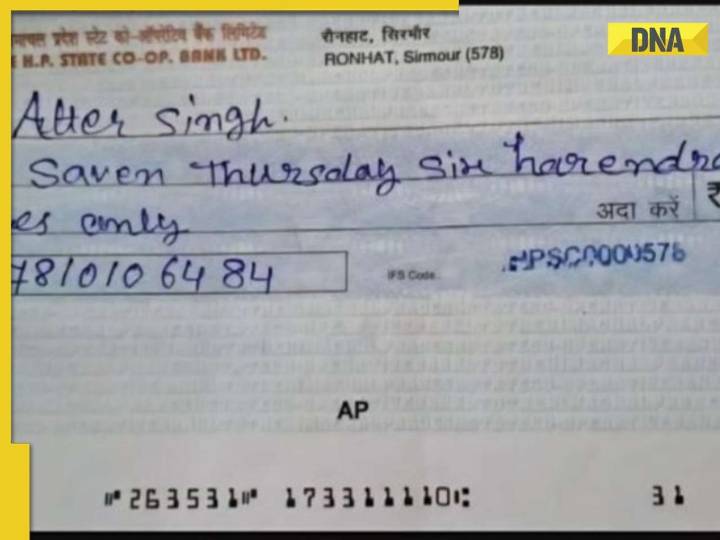 DNA
प्रदेश स्टेट को-ऑपरेटिव बैंक लिमिटेड
H.P. STATE CO-OP. BANK LTD.
रौनहाट, सिरमौर
RONHAT, Sirmour (578)
Atter Singh.
Saven Thursday Six harendra
es only
अदा करें ₹
7810106484
IFS Code.
HPSC0000578
AP
⑈263531⑈ 173311110⑆ 31